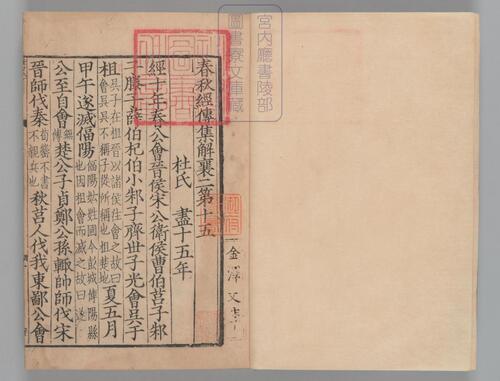 春秋經傳集解襄二第十五
杜氏 盡十五年
經十年春公會晉侯宋公衛侯曹伯莒子邾
子滕子薛伯杞伯小邾子齊世子光會吳于
柤吳子在柤晉以諸侯往會之故曰會吳吳不稱子從所稱也柤楚地夏五月
甲午遂滅偪陽偪陽妘姓國今彭城傅陽縣也因柤會而滅之故曰遂
公至自會無傳楚公子貞鄭公孫輒帥師伐宋
晉師伐秦荀罃不書不親兵也秋莒人伐我東鄙公會
金澤文庫
宮内廳書陵部
圖書寮文庫藏